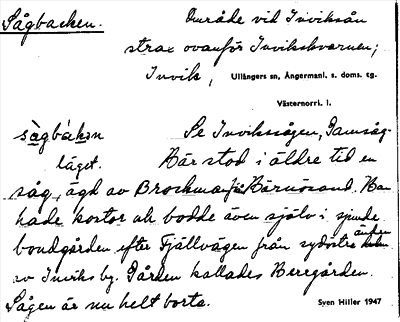 Sågbacken. Område vid Inviksån
strax ovanför Invikskvarnen;
Invik, Ullångers sn, Ångermanl. s. doms. tg.
Västernorrl. l.
sàgbák̀ən Se Invikssågen, Damsåg-
läget. Här stod i äldre tid en
såg, ägd av Brockman från Härnösand. Han
hade kostor och bodde även själv i sjunde
bondgården efter Fjällvägen från sydöstra ändan
av Inviks by. Gården kallades Berggården.
Sågen är nu helt borta. Sven Hiller 1947